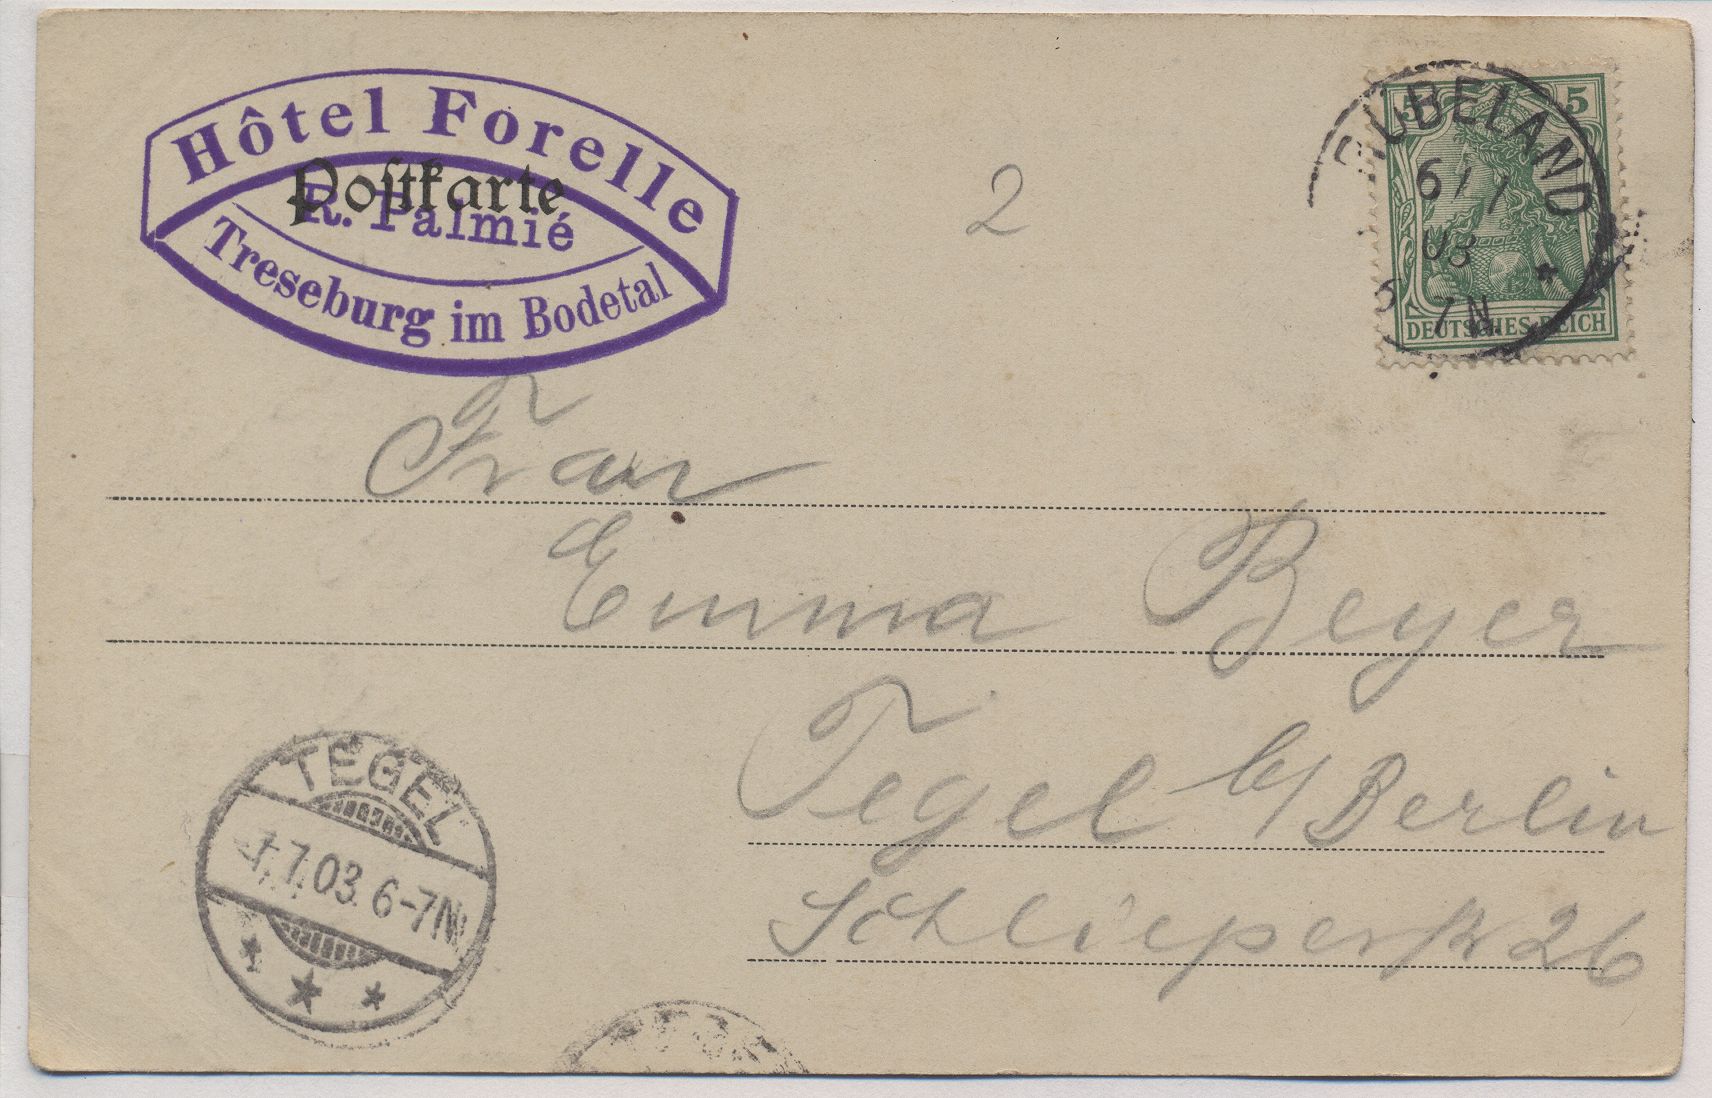 Hôtel Forelle
Postkarte
R. Palmié
Treseburg im Bodetal
2
5 5
RÜBELAND
6/7
03
6 7N.
DEUTSCHES REICH
Frau
Emma Beyer
Tegel b/ Berlin
Schlieperstr 26
TEGEL
7.7.03. 6-7N.